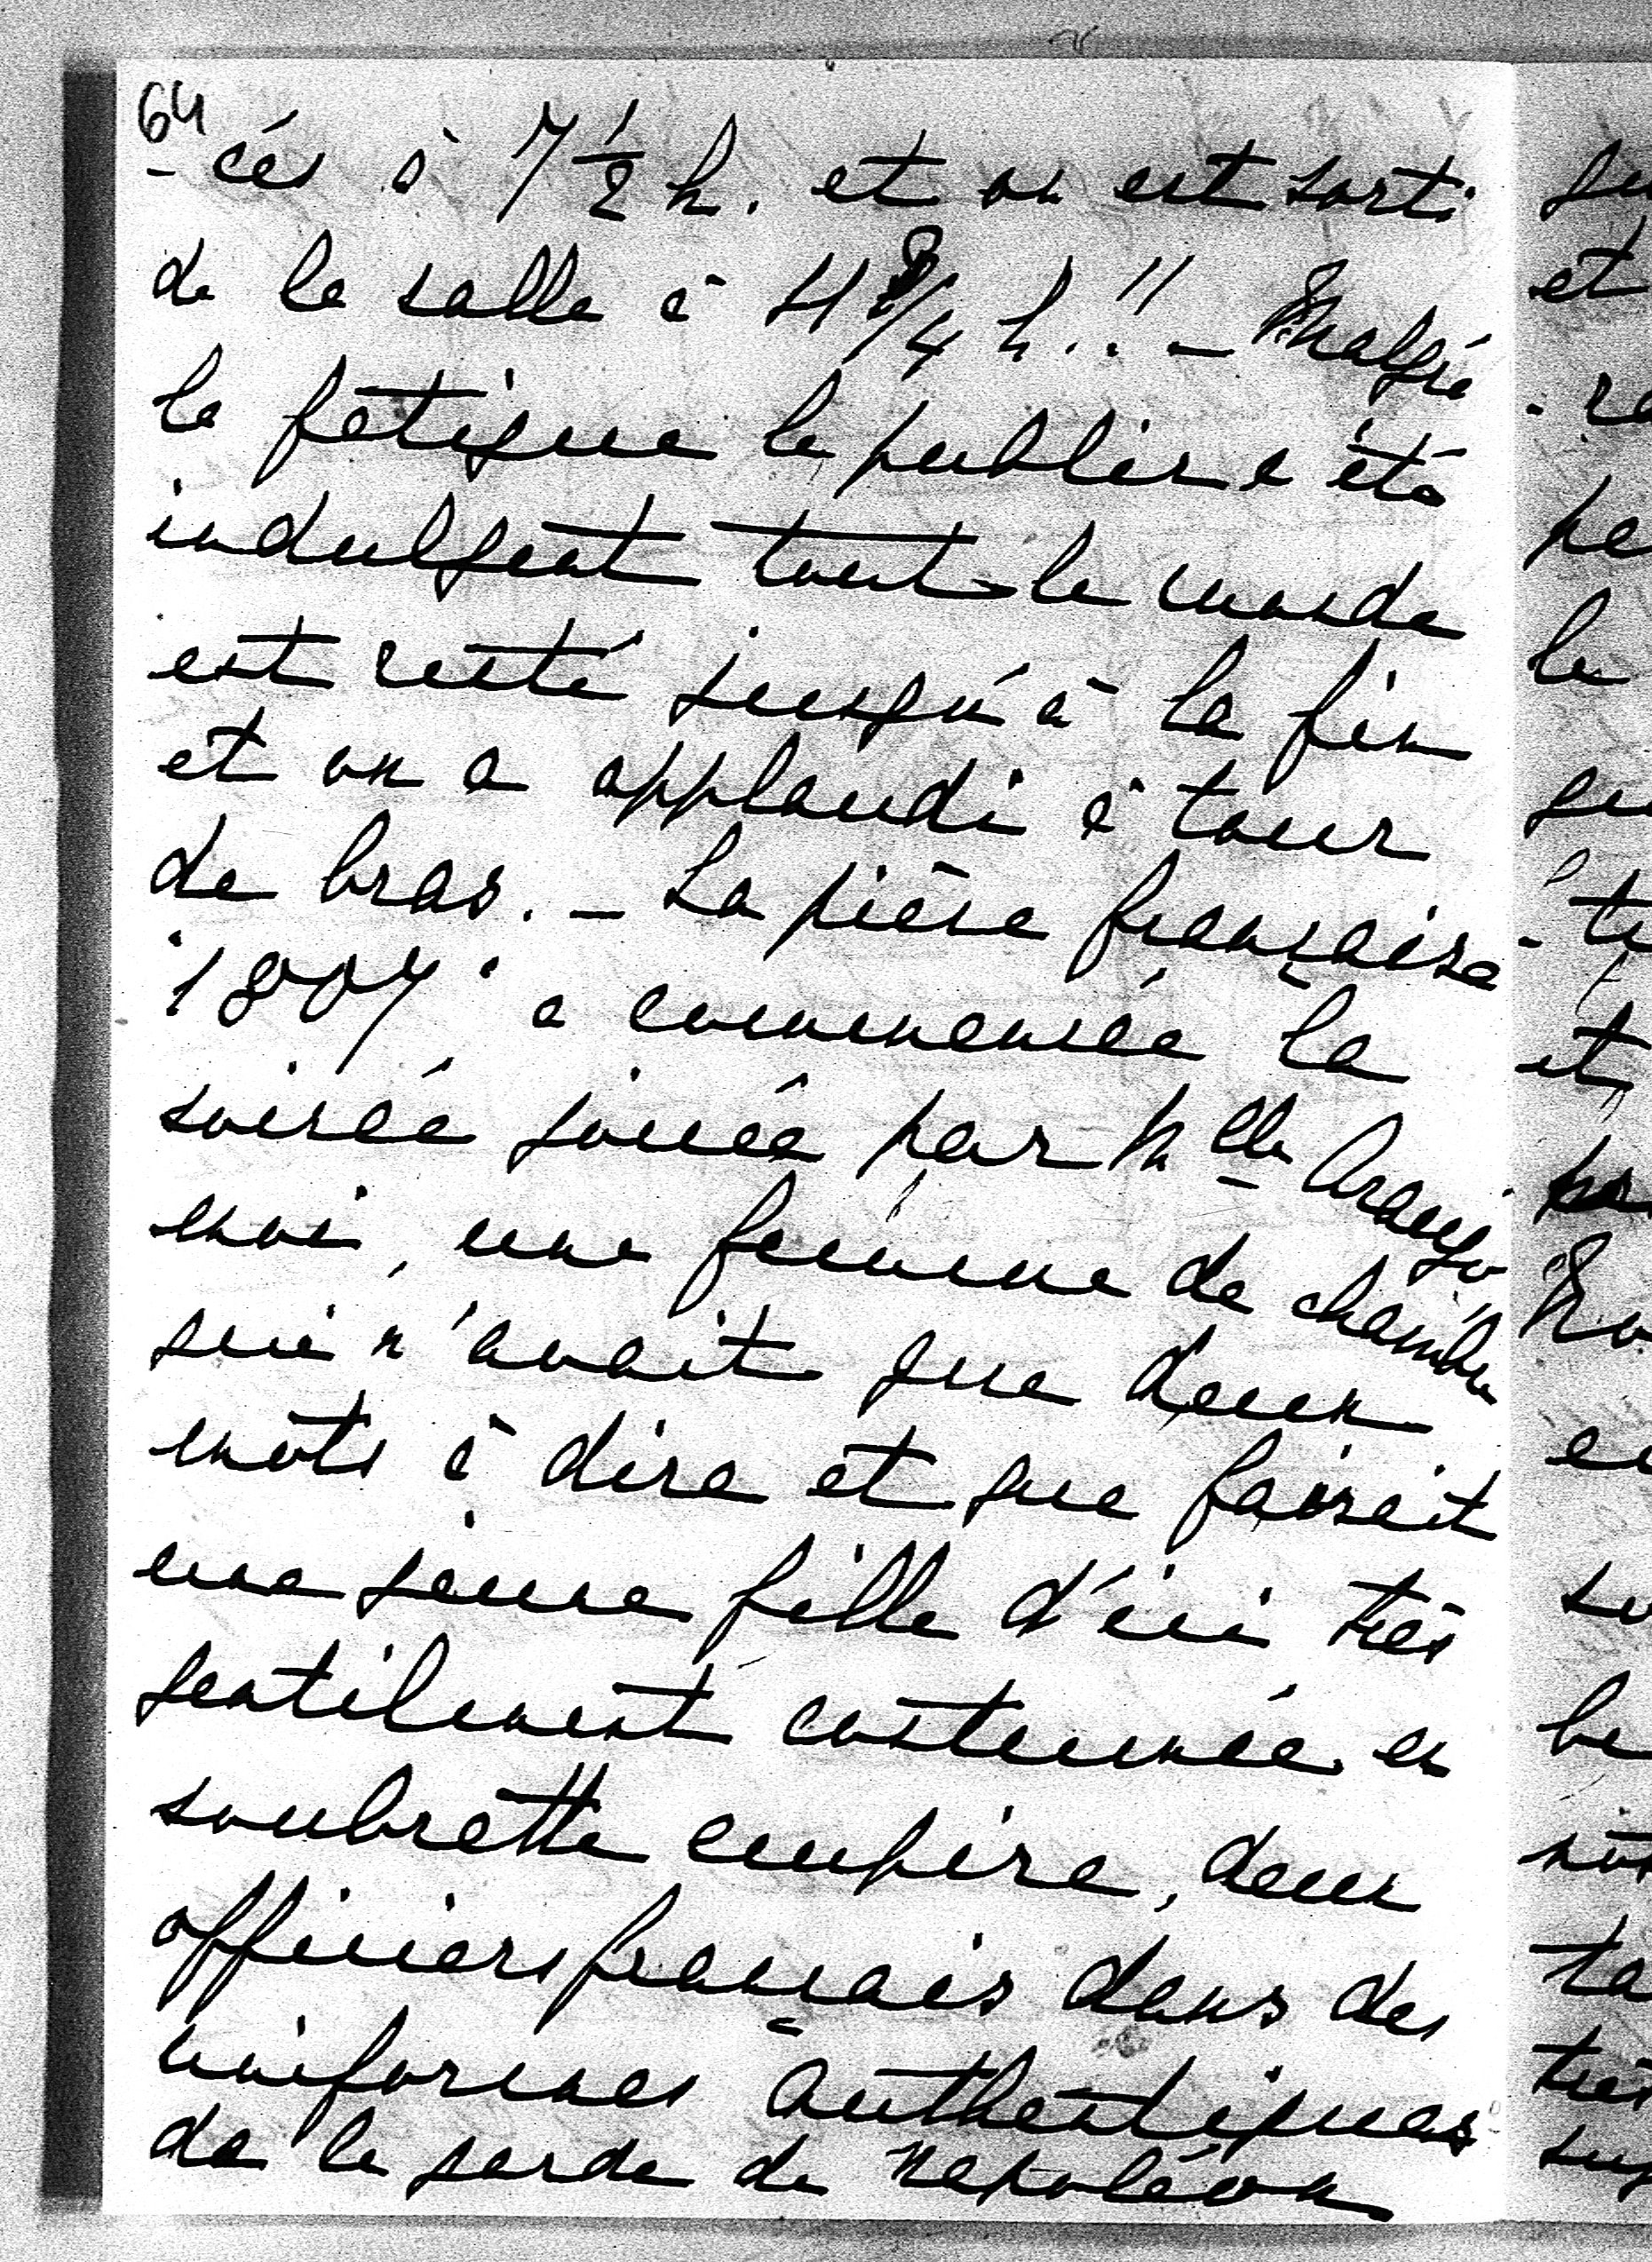 64
-cés à 7 1/2 h. et on est sorti
de la salle à 4 3/4 h..!! - Malgré
la fatigue le public a été
indulgent tout-le monde
est resté jusqu'à la fin
et on a applaudi à tour
de bras. - La pièce française
"1807" a commencée la
soirée jouée par Mlle Arango
moi, une femme de chambre
qui n'avait que deux
mots à dire et que faisait
une jeune fille d'ici très
gentilement costumée en
soubrette empire, deux
officiers français dans des
uniformes authentiques
de la garde de Napoléon